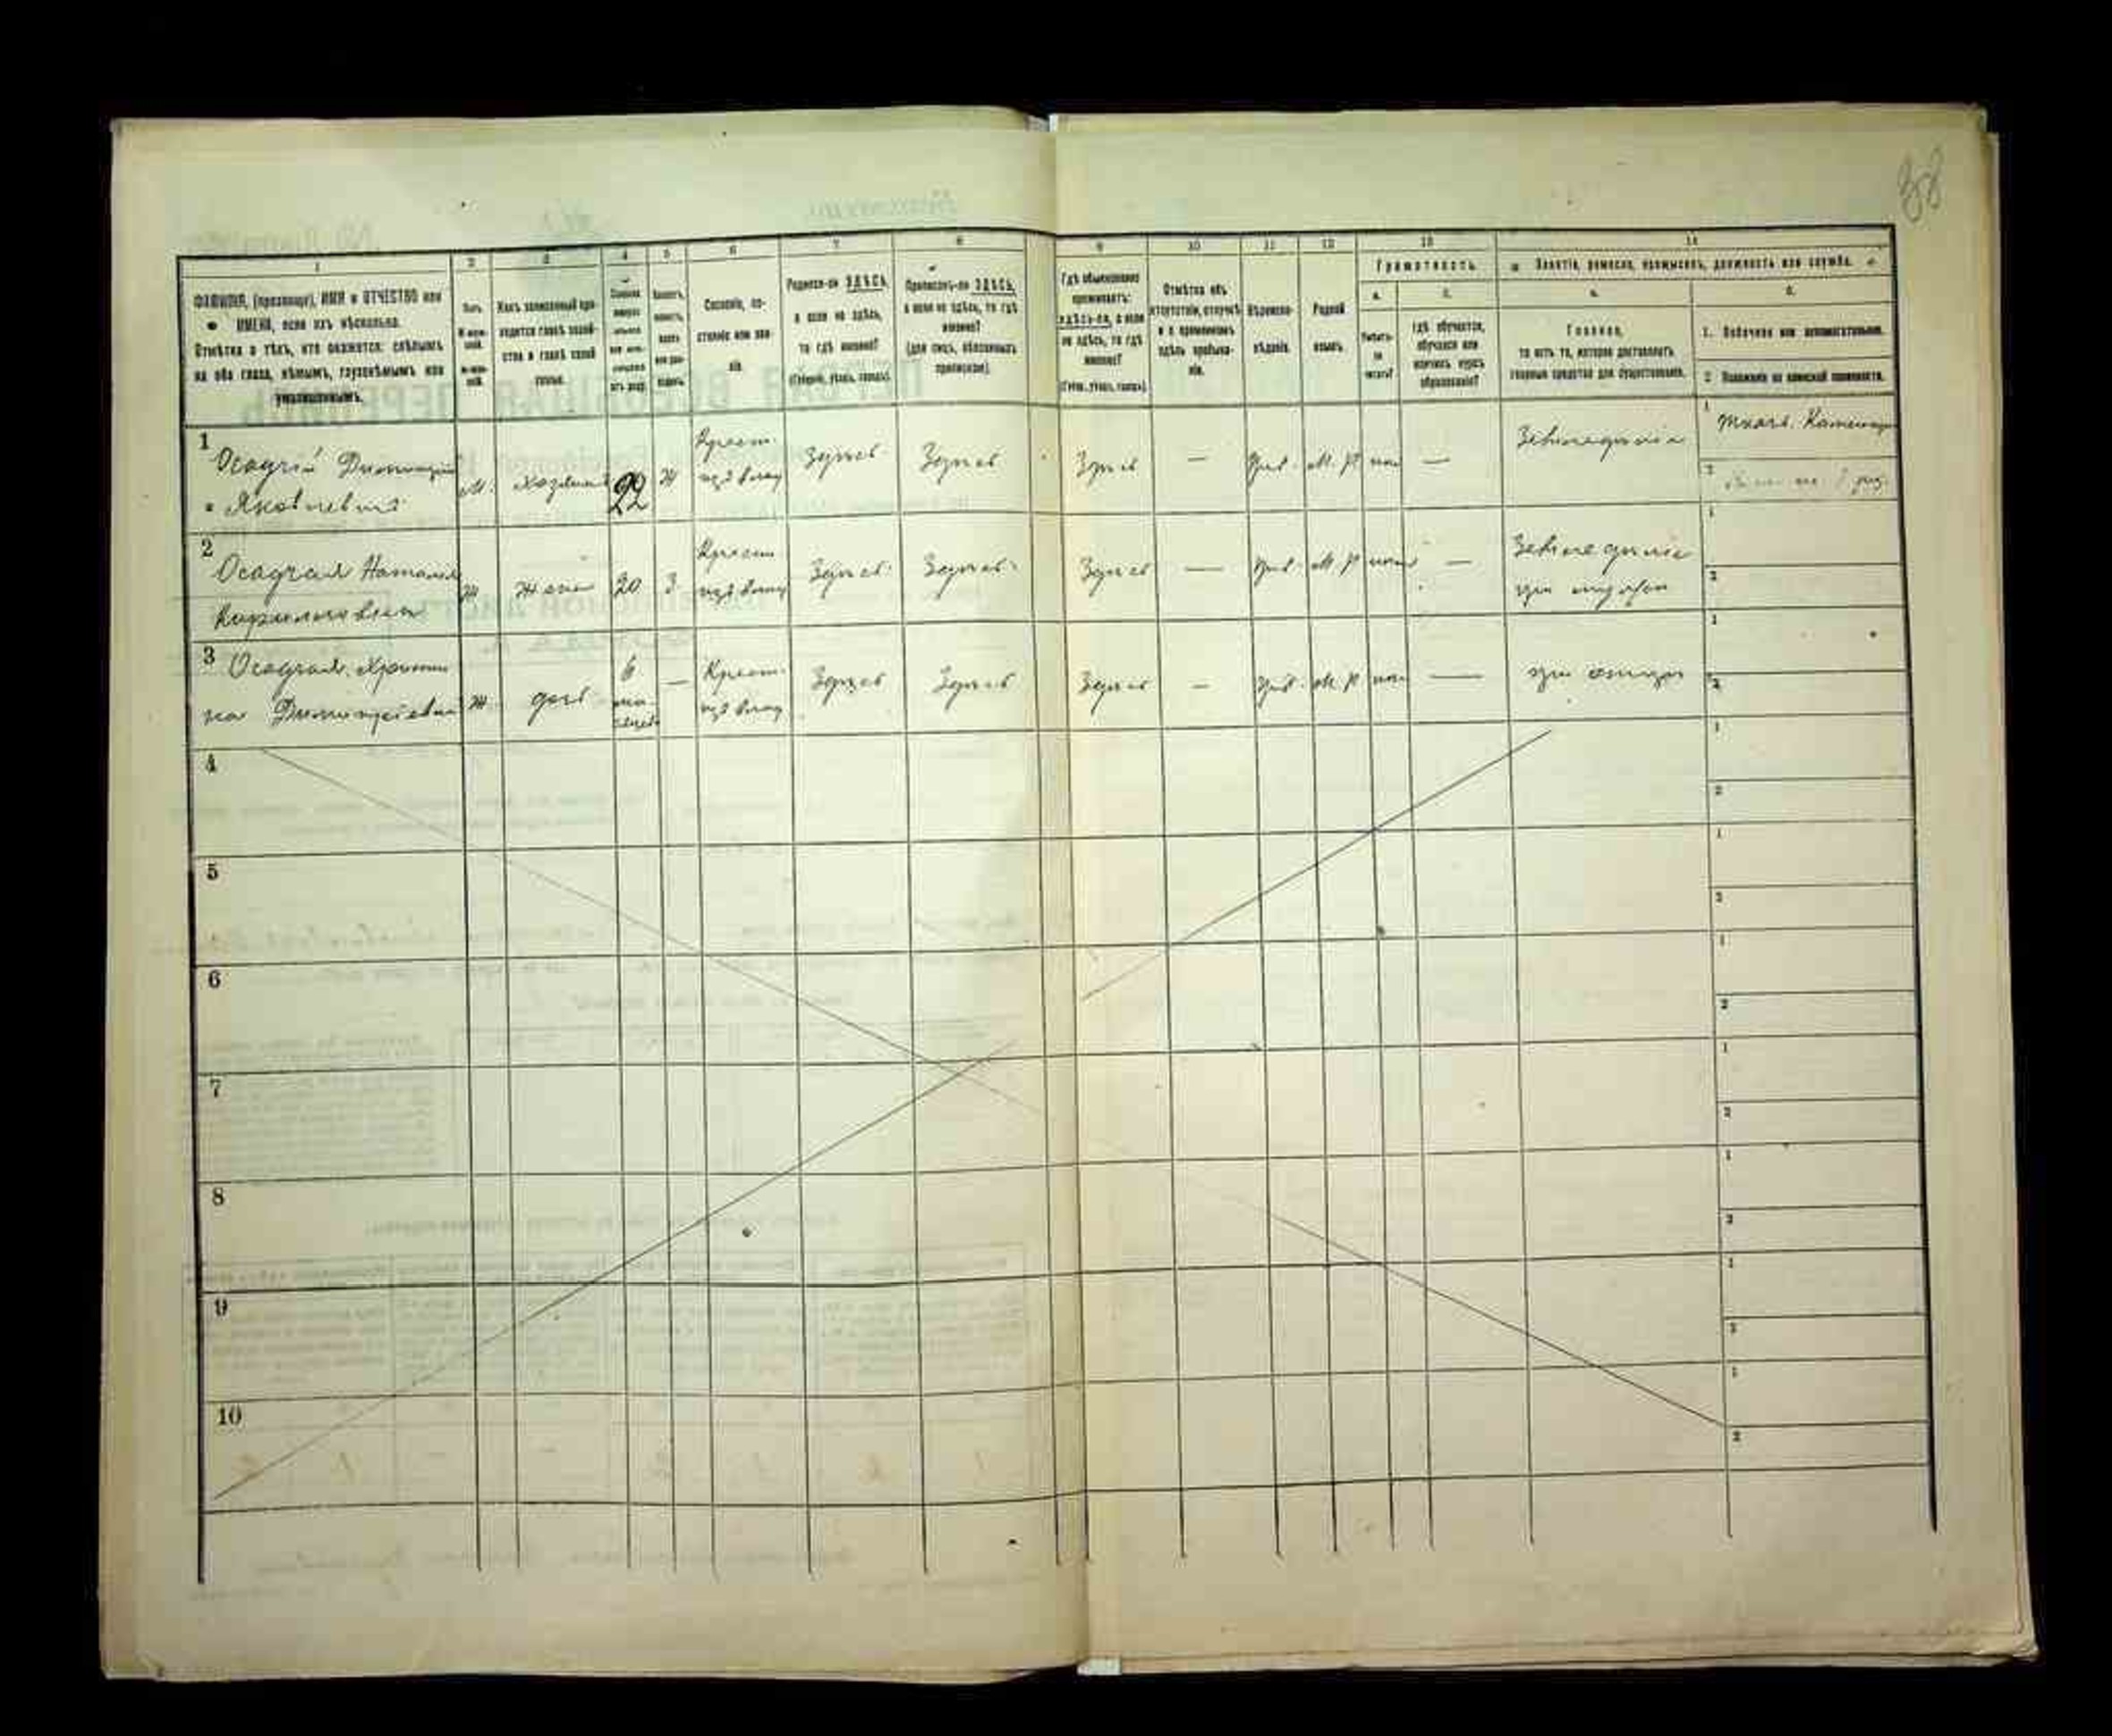 38
1
2
3
4
5
6
7
8
9
10
11
12
13
14
ФАМИЛІЯ, (прозвище), ИМЯ и ОТЧЕСТВО или
ИМЕНА, если ихъ нѣсколько.
Отмѣтка о тѣхъ, кто окажется: слѣпымъ
на оба глаза, нѣмымъ, глухонѣмымъ или
умалишеннымъ.
Полъ.
Какъ записанный при-
ходится главѣ хозяй-
ства и главѣ своей
семьи.
Сословіе, со-
стояніе или зва-
ніе.
Родился-ли ЗДѢСЬ,
а если не здѣсь,
то гдѣ именно?
(Губернія, уѣздъ, городъ).
Приписанъ-ли ЗДѢСЬ,
а если не здѣсь, то гдѣ
именно?
(Для лицъ, обязанныхъ
припискою).
Гдѣ обыкновенно
проживаетъ:
здѣсь-ли, а если
не здѣсь, то гдѣ
именно?
(Губ., уѣздъ, городъ).
Отмѣтка объ
отсутствіи, отлучкѣ
и о временномъ
здѣсь пребыва-
ніи.
Вѣроиспо-
вѣданіе.
Родной
языкъ.
Грамотность.
а.
б.
Умѣетъ-
ли
читать?
гдѣ обучается,
обучался или
кончилъ курсъ
образованія?
Занятіе, ремесло, промыселъ, должность или служба.
а.
б.
Главное,
то есть то, которое доставляетъ
главныя средства для существованія.
1. Побочное или вспомогательное.
2. Положеніе по воинской повинности.
1
Осадчій Димитрій
Яковлевичъ
М.
хозяинъ
22
Ж
Крест.
изъ влад
Здѣсь
Здѣсь
Здѣсь
—
Прав.
М. Р
нѣтъ
—
Земледѣліе
1
2
2
Осадчая Наталія
Кирилловна
Ж
Жена
20
З
Крест
изъ влад
Здѣсь
Здѣсь
Здѣсь
—
Прав.
М. Р
нѣтъ
—
Земледѣліе
при мужѣ
1
2
3
Осадчая Христи
на Димитріевна
Ж
дочь
6
мѣ-
сяцевъ
—
Крест.
изъ влад
Здѣсь
Здѣсь
Здѣсь
—
Прав.
М. Р
нѣтъ
—
при отцѣ
1
2
4
1
2
5
1
2
6
1
2
7
1
2
8
1
2
9
1
2
10
1
2